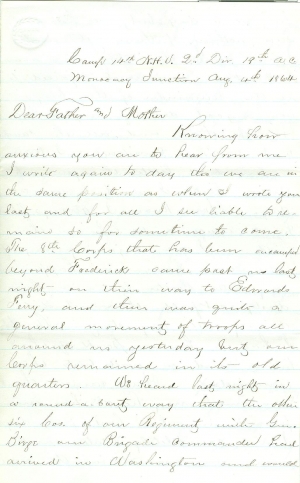 Camp 14th N.H.V. 2d Div. 19th A.C.
Monocacy Junction Aug. 4th 1864
Dear Father and Mother
Knowing how
anxious you are to hear from me
I write again to day tho' we are in
the same position as when I wrote you
last and for all I see liable to re-
main so for sometime to come.
The 8th Corps that has been encamped
beyond Frederick came past us last
night on their way to Edwards
Fery, and there was quite a
general movement of troops all
around us yesterday but our
Corps remained in its old
quarters. We heard last night in
a round-a-bout way that the other
six Cos. of our Regiment with Gen.
Birge our Brigade Commander had
arived in Washington and would